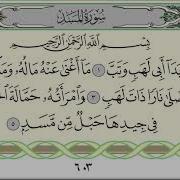 سُورَةُ المَسَدِ
بِسْمِ اللَّهِ الرَّحْمَٰنِ الرَّحِيمِ
يَدَا أَبِي لَهَبٍ وَتَبَّ ١ مَا أَغْنَىٰ عَنْهُ مَالُهُ وَمَ
صْلَىٰ نَارًا ذَاتَ لَهَبٍ ٣ وَامْرَأَتُهُ حَمَّالَةَ
فِي جِيدِهَا حَبْلٌ مِّن مَّسَدٍ ٥
٦٠٣